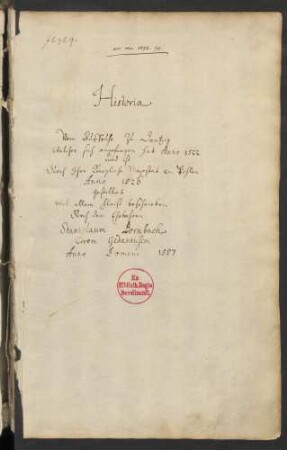 Historia
Vom Auffruhr zu Dantzig
welcher sich angefangen hat Anno 1522
und ist
durch Ihre Königliche Majestät zu Pohlen
Anno 1526
gestillet
mit allem fleiß beschrieben
durch den Ehrbahren
Stanislaum Bornbach
Civem Gedanensem
Anno Domini 1587
Ex
Biblioth. Regia
Berolinensi.